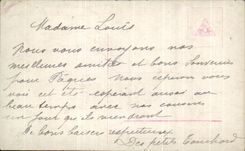 Madame Louis
Nous vous envoyons nos
meilleures amitiés et bons souvenirs
pour Pâques Nous espérons vous
voir cet été esperant avoir du
beau temps avec nos cousins
un jour qu'ils viendront
De bons baisers respectueux
Des petits